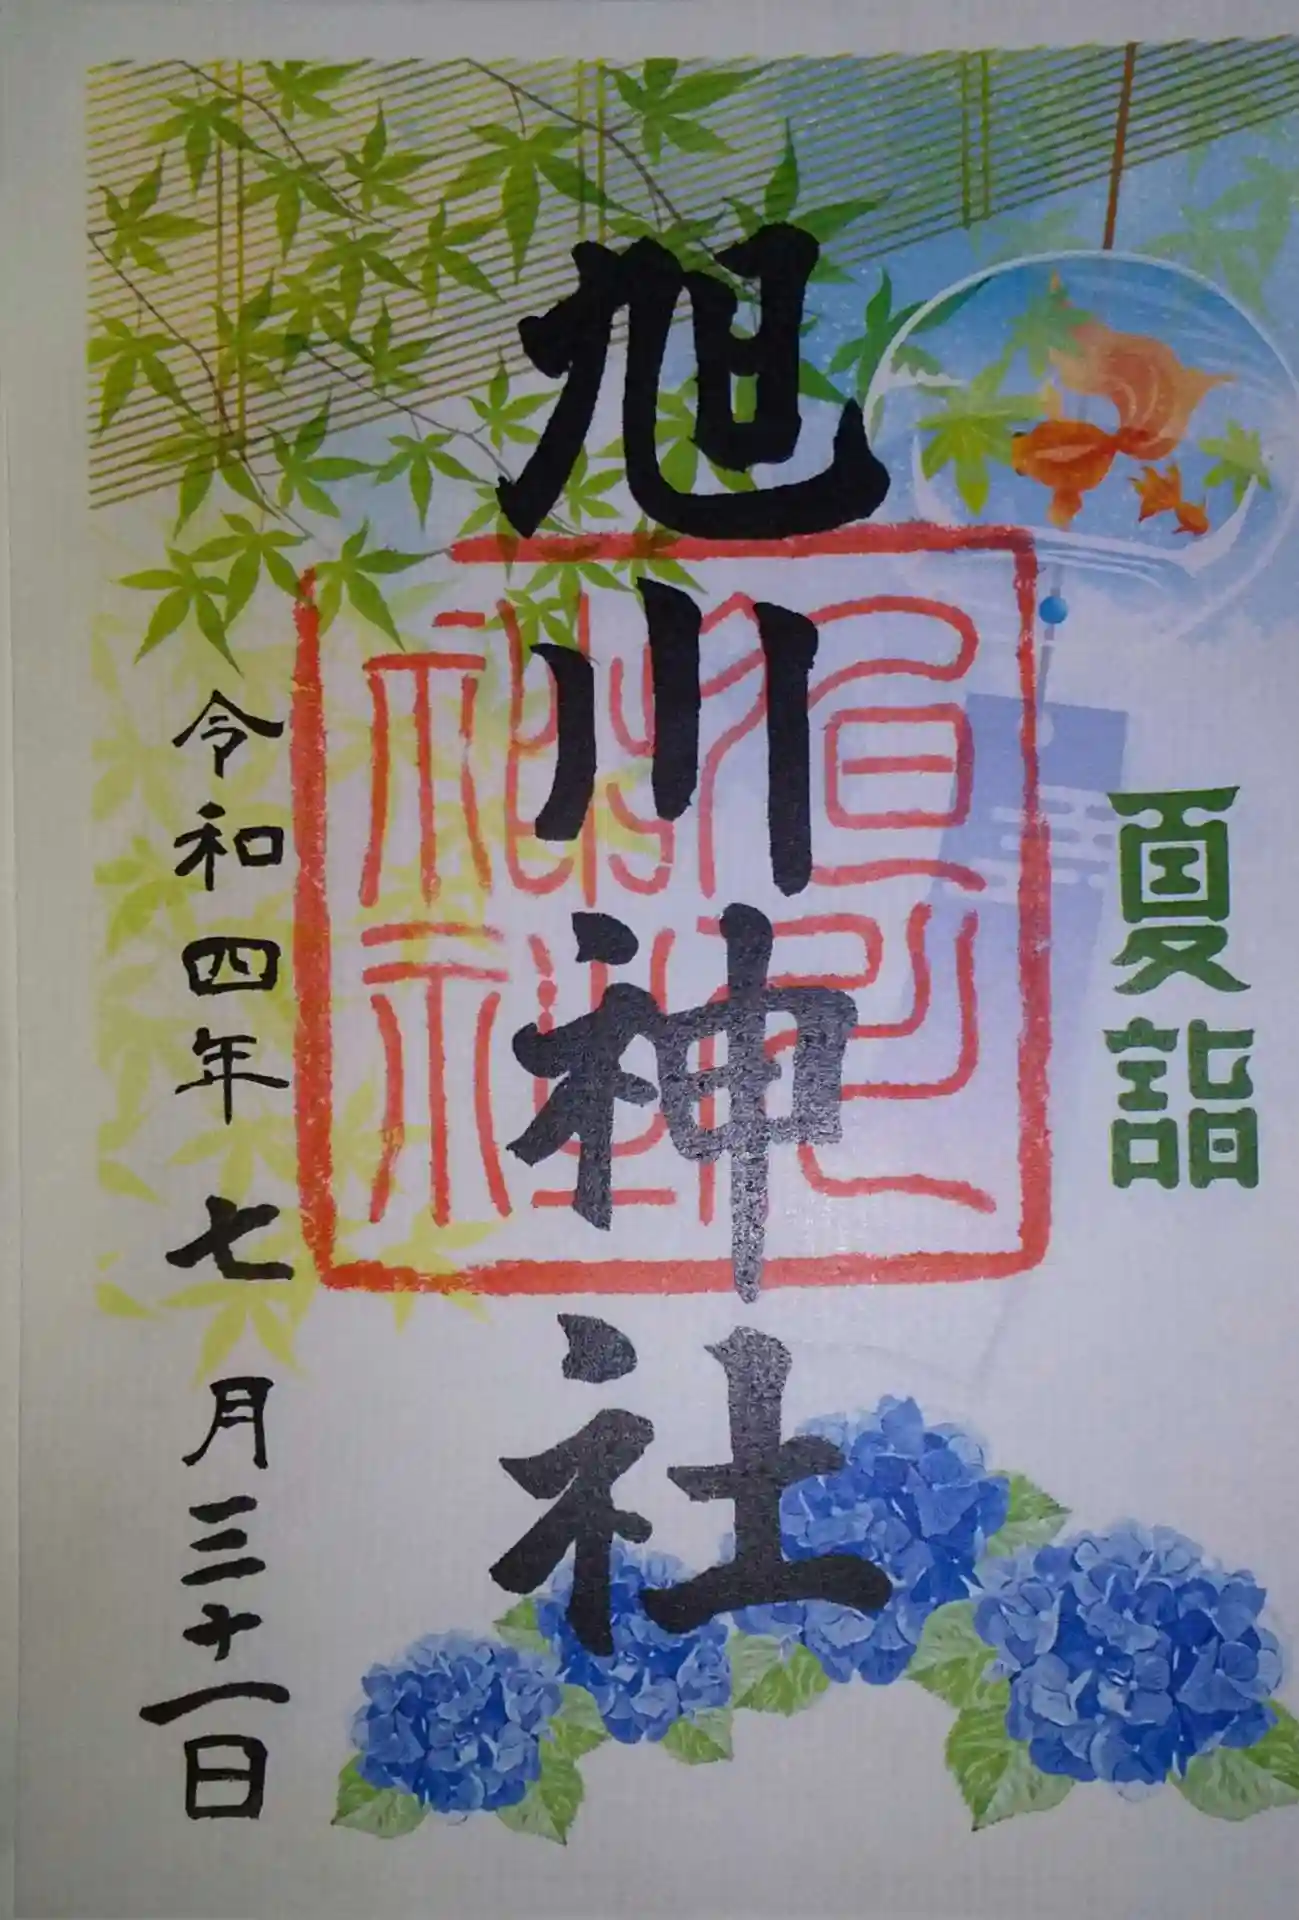 夏詣
旭川神社
旭川神社
令和四年七月三十一日